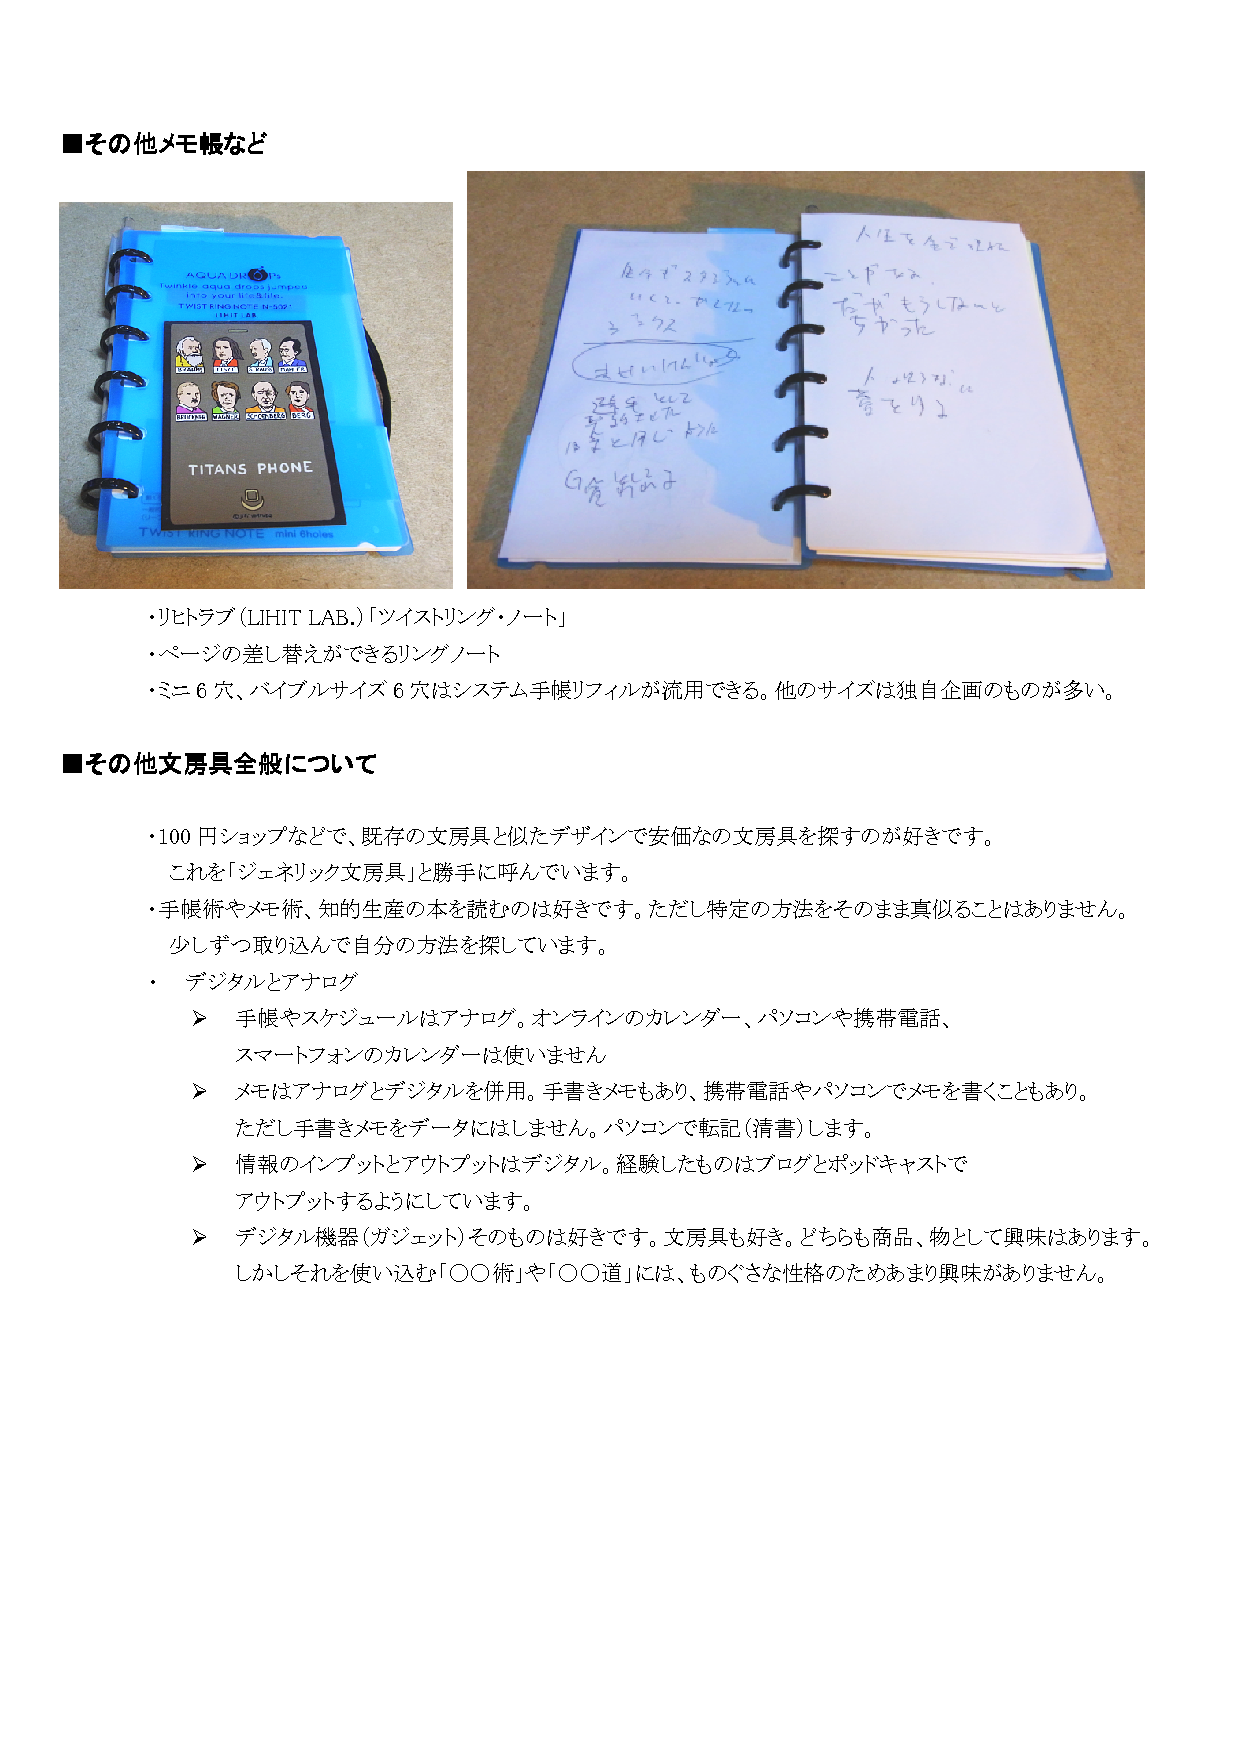 ■その他メモ帳など
AQUADROPs
Twinkle aqua drops jumped
into your life&life.
TWIST RING NOTE N-1602
LIHIT LAB.
BRAHMS LISZT STRAUSS MAHLER
BRUCKNER WAGNER SCHOENBERG BERG
TITANS PHONE
TWIST RING NOTE mini 6holes
人生を
ことがある。
だがもうしないと
ちかった
人
音をける
・リヒトラブ（LIHIT LAB.）「ツイストリング・ノート」
・ページの差し替えができるリングノート
・ミニ 6 穴、バイブルサイズ 6 穴はシステム手帳リフィルが流用できる。他のサイズは独自企画のものが多い。
■その他文房具全般について
・100 円ショップなどで、既存の文房具と似たデザインで安価なの文房具を探すのが好きです。
これを「ジェネリック文房具」と勝手に呼んでいます。
・手帳術やメモ術、知的生産の本を読むのは好きです。ただし特定の方法をそのまま真似ることはありません。
少しずつ取り込んで自分の方法を探しています。
・ デジタルとアナログ
➢ 手帳やスケジュールはアナログ。オンラインのカレンダー、パソコンや携帯電話、
スマートフォンのカレンダーは使いません
➢ メモはアナログとデジタルを併用。手書きメモもあり、携帯電話やパソコンでメモを書くこともあり。
ただし手書きメモをデータにはしません。パソコンで転記（清書）します。
➢ 情報のインプットとアウトプットはデジタル。経験したものはブログとポッドキャストで
アウトプットするようにしています。
➢ デジタル機器（ガジェット）そのものは好きです。文房具も好き。どちらも商品、物として興味はあります。
しかしそれを使い込む「〇〇術」や「〇〇道」には、ものぐさな性格のためあまり興味がありません。